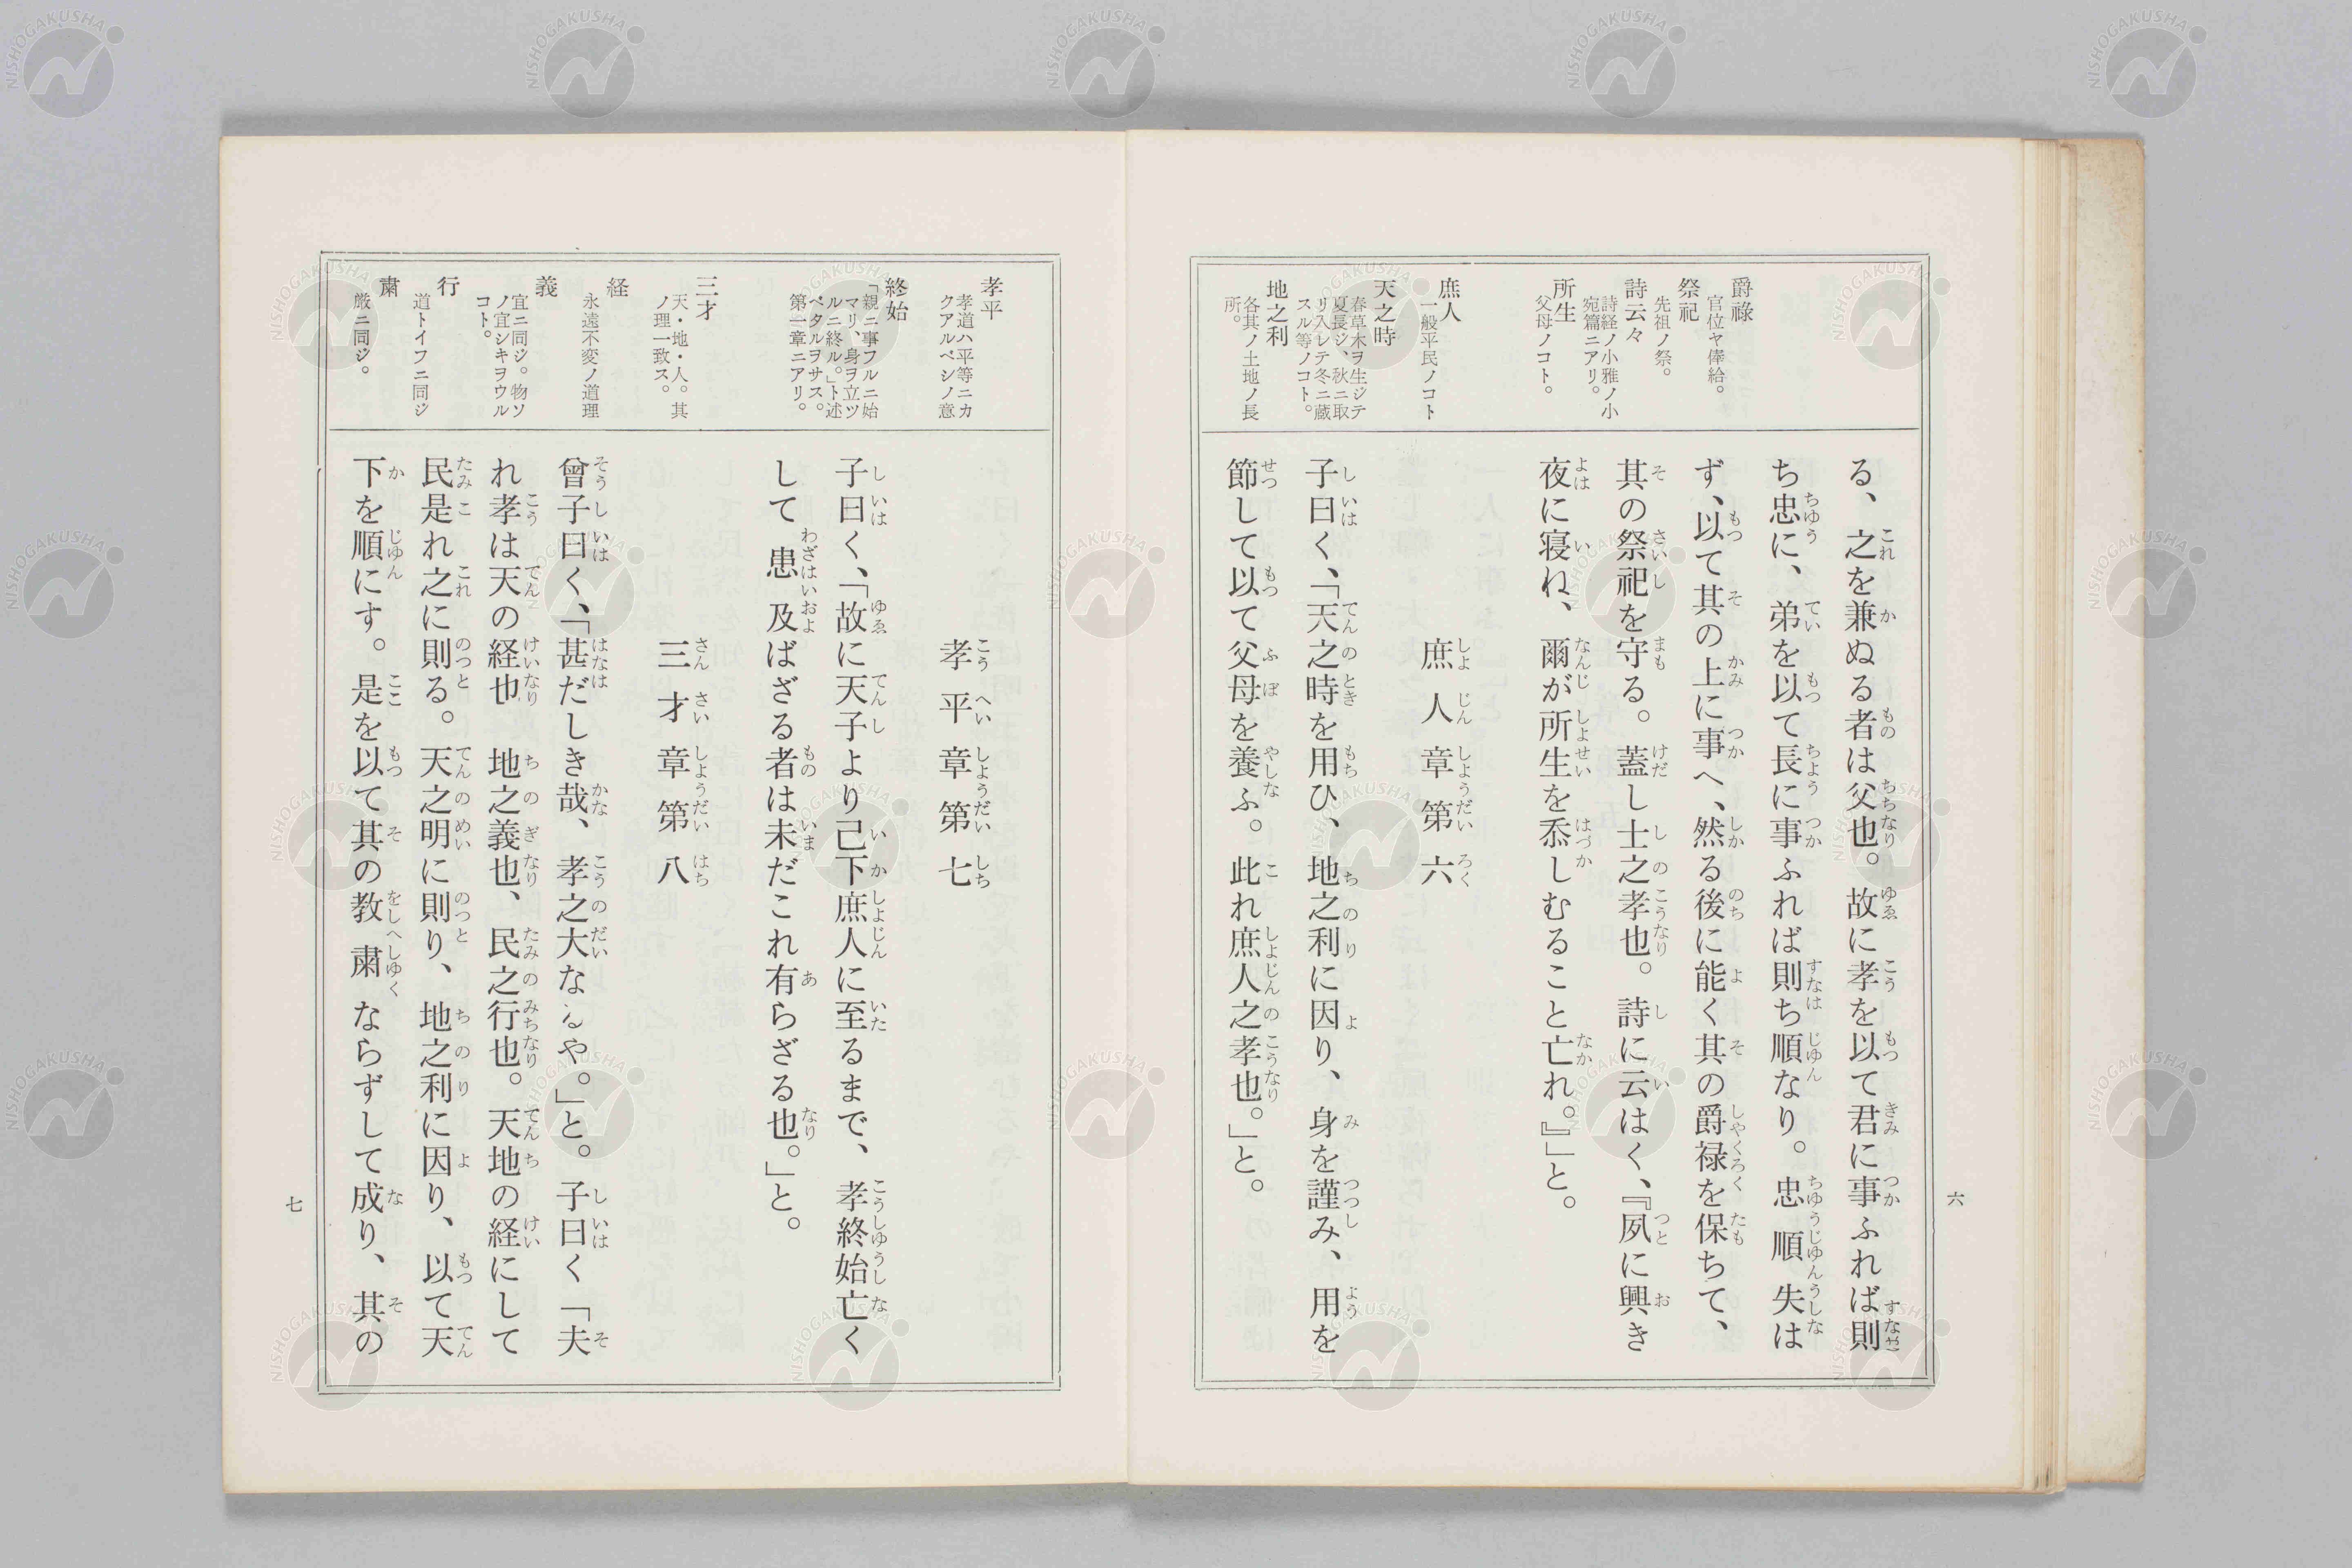 爵祿
官位ヤ俸給。
祭祀
先祖ノ祭。
詩云々
詩経ノ小雅ノ小
宛篇ニアリ。
所生
父母ノコト。
庶人
一般平民ノコト
天之時
春草木ヲ生ジテ
夏長ジ、秋ニ取
リ入レテ冬ニ蔵
スル等ノコト。
地之利
各其ノ土地ノ長
所。
る、之を兼ぬる者は父也。故に孝を以て君に事ふれば則
ち忠に、弟を以て長に事ふれば則ち順なり。忠順失は
ず、以て其の上に事へ、然る後に能く其の爵禄を保ちて、
其の祭祀を守る。蓋し士之孝也。詩に云はく、『夙に興き
夜に寝ね、爾が所生を忝しむること亡れ。』」と。
庶人章第六
子曰く、「天之時を用ひ、地之利に因り、身を謹み、用を
節して以て父母を養ふ。此れ庶人之孝也。」と。
六
孝平
孝道ハ平等ニカ
クアルベシノ意
終始
「親ニ事フルニ始
マリ、身ヲ立ツ
ルニ終ル。」ト述
ベタルヲサス。
第一章ニアリ。
三才
天・地・人。其
ノ理一致ス。
経
永遠不変ノ道理
義
宜ニ同ジ。物ソ
ノ宜シキヲウル
コト。
行
道トイフニ同ジ
粛
厳ニ同ジ。
孝平章第七
子曰く、「故に天子より己下庶人に至るまで、孝終始亡く
して患及ばざる者は未だこれ有らざる也。」と。
三才章第八
曾子曰く、「甚だしき哉、孝之大なんや。」と。子曰く「夫
れ孝は天の経也 地之義也、民之行也。天地の経にして
民是れ之に則る。天之明に則り、地之利に因り、以て天
下を順にす。是を以て其の教粛ならずして成り、其の
七
NISHOGAKUSHA